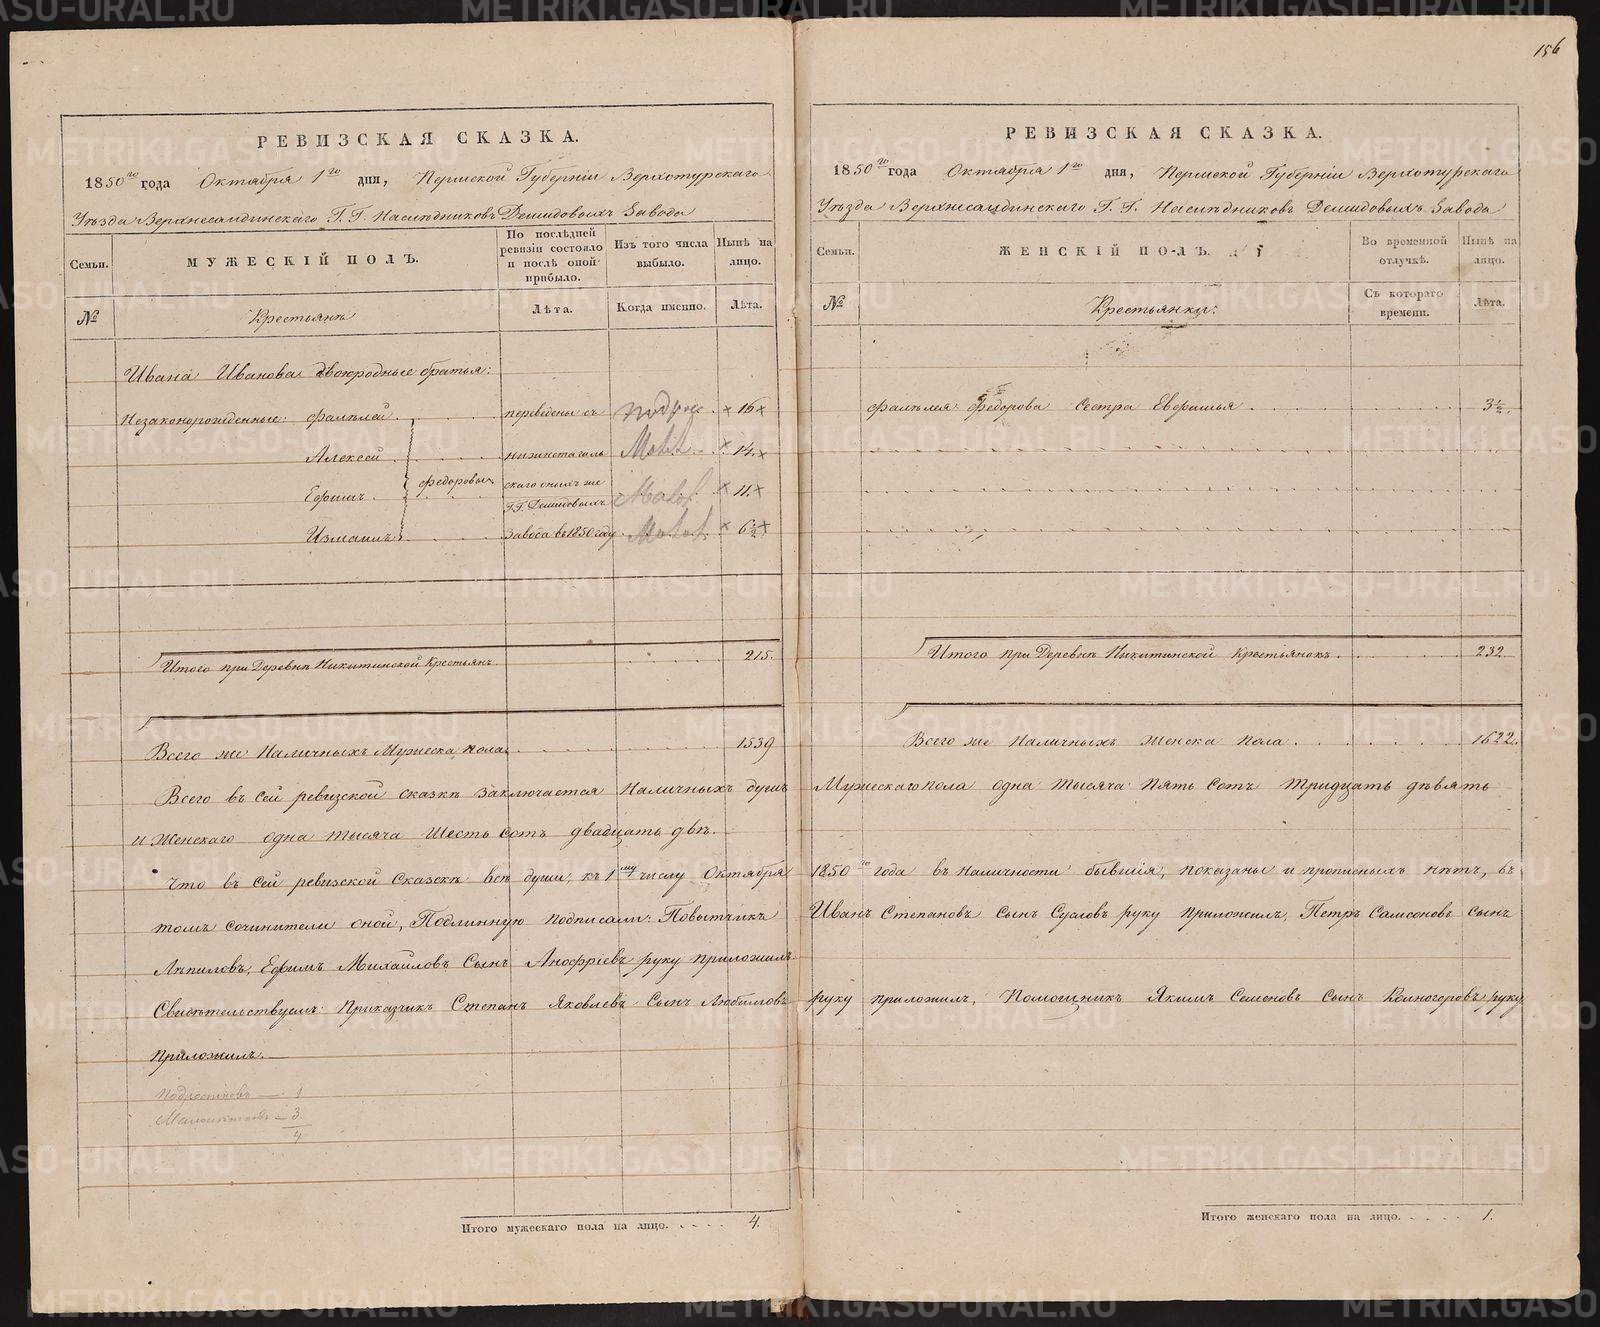 156
РЕВИЗСКАЯ СКАЗКА.
1850го года Октября 1го дня, Пермской Губерніи Верхотурскаго
Уѣзда Верхнесалдинскаго Г.Г. Наслѣдниковъ Демидовыхъ Завода
Семьи.
МУЖЕСКІЙ ПОЛЪ.
По послѣдней ревизіи состояло и послѣ оной прибыло.
Изъ того числа выбыло.
Нынѣ на лицо.
№
Крестьянъ
Лѣта.
Когда именно.
Лѣта.
Ивана Иванова двоюродные братья:
Незаконорожденные: Фалѣлей переведены съ × 16 ×
Алексей нижнетагиль × 14 ×
Ефимъ Федоровы скаго онихъ же × 11 ×
Г.Г. Демидовыхъ
Измаилъ завода въ 1850 году × 6½ ×
Итого при Деревнѣ Никитинской Крестьянъ 215.
Всего же Наличныхъ Мужеска пола 1539
Всего въ сей ревизской сказкѣ заключается Наличныхъ душъ
и Женскаго одна тысяча Шесть сотъ двадцать двѣ.
Что въ сей ревизской Сказкѣ всѣ души, къ 1му числу Октября
томъ сочинители оной, Подлинную подписали: Повытчикъ
Лѣпиловъ, Ефимъ Михайловъ Сынъ Анофріевъ руку приложилъ.
Свидѣтельствуемъ: Приказчикъ Степанъ Яковлевъ Сынъ Любимовъ
приложилъ.
Подростковъ — 1
Малолѣтковъ — 3.
4
Итого мужескаго пола на лицо. 4.
РЕВИЗСКАЯ СКАЗКА.
1850го года Октября 1го дня, Пермской Губерніи Верхотурскаго
Уѣзда Верхнесалдинскаго Г.Г. Наслѣдниковъ Демидовыхъ Завода
Семьи.
ЖЕНСКІЙ ПОЛЪ.
Во временной отлучкѣ.
Нынѣ на лицо.
№
Крестьянки:
Съ котораго времени.
Лѣта.
Фалѣлея Федорова сестра Евфимья 3½.
Итого при Деревнѣ Никитинской Крестьянокъ 232
Всего же Наличныхъ женска пола 1622.
Мужескаго пола одна тысяча Пять сотъ тридцать дѣвять
1850го года въ Наличности бывшія, показаны и прописныхъ нѣтъ, въ
Иванъ Степановъ Сынъ Сусловъ руку приложилъ, Петръ Самсоновъ сынъ
руку приложилъ, Помощникъ Якимъ Семеновъ Сынъ руку
Итого женскаго пола на лицо. 1.
METRIKI.GASO-URAL.RU